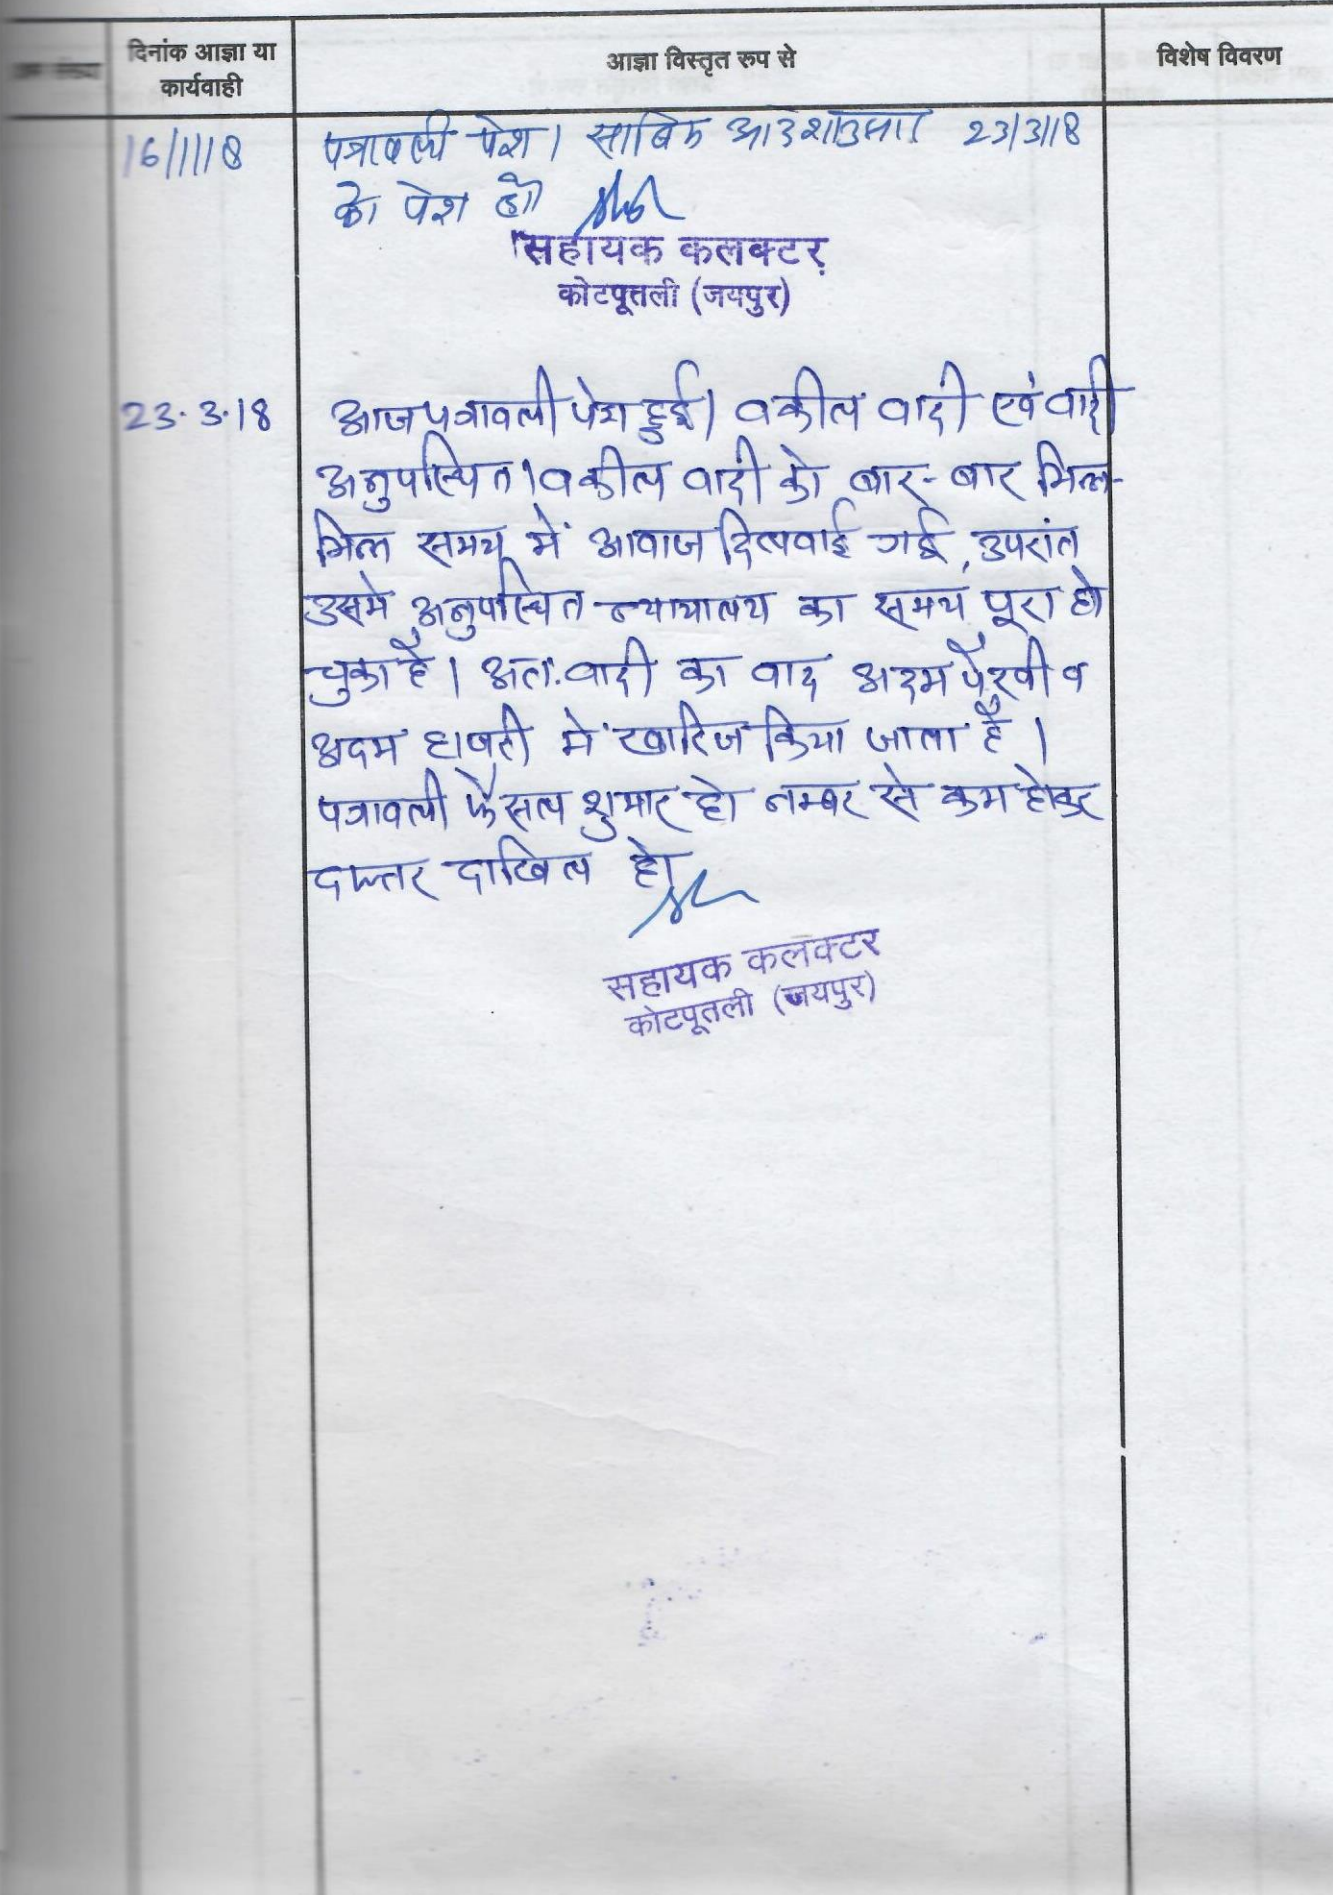 दिनांक आज्ञा या
कार्यवाही
आज्ञा विस्तृत रुप से
विशेष विवरण
16/1/18
पत्रावली पेश। साबिक आदेशानुसार 23/3/18
को पेश हो
सहायक कलक्टर
कोटपूतली (जयपुर)
23.3.18
आज पत्रावली पेश हुई। वकील वादी एवं वादी
अनुपस्थित। वकील वादी को बार-बार भिन्न-
भिन्न समय में आवाज दिलवाई गई, उपरांत
उसमे अनुपस्थित न्यायालय का समय पूरा हो
चुका है। अतः वादी का वाद अदम पैरवी व
अदम हाजरी में खारिज किया जाता है।
पत्रावली फैसल शुमार हो नम्बर से कम होकर
दफ्तर दाखिल हो।
सहायक कलक्टर
कोटपूतली (जयपुर)